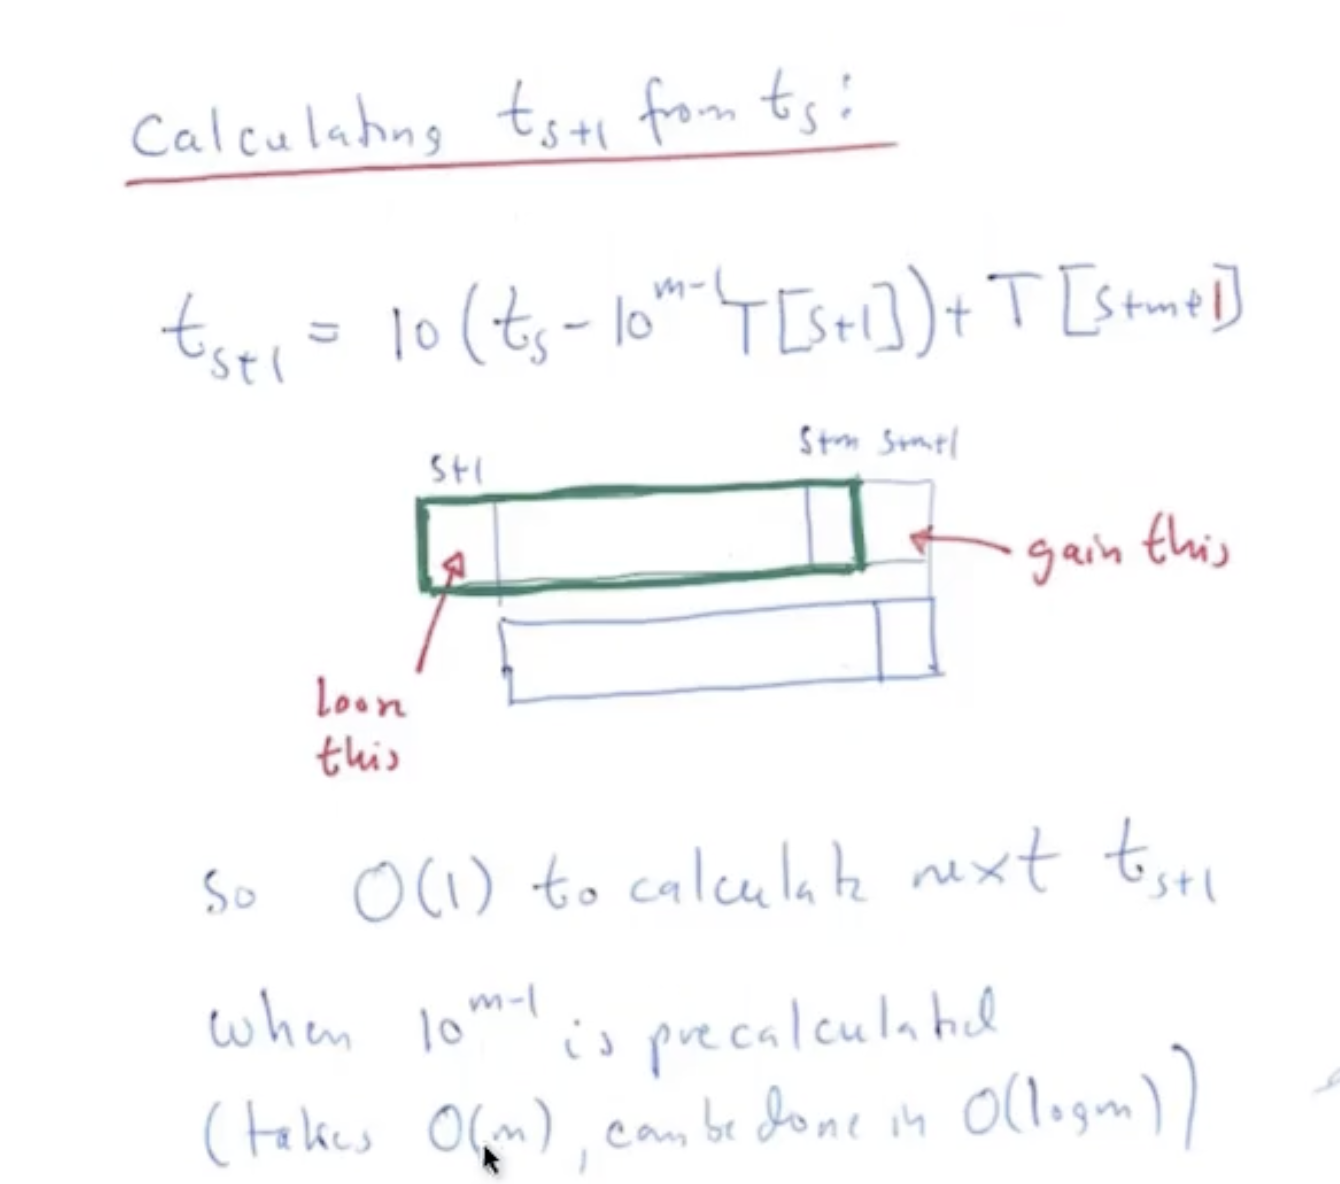 Calculating t_{s+1} from t_s:
t_{s+1} = 10(t_s - 10^{m-1} T[s+1]) + T[s+m+1]
s+m s+m+1
s+1
gain this
loon
this
So O(1) to calculate next t_{s+1}
when 10^{m-1} is precalculated
(takes O(m), can be done in O(logm))